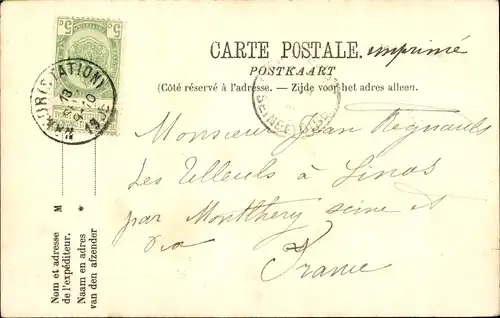 CARTE POSTALE. imprimé
POSTKAART
(Côté réservé à l'adresse. — Zijde voor het adres alleen.
5c 5c
NAMUR (STATION)
Monsieur Jean Regnault
Les Tilleuls à Linas
par Montlhéry Seine et
Oise
France
M
Nom et adresse
de l'expéditeur.
*
Naam en adres
van den afzender